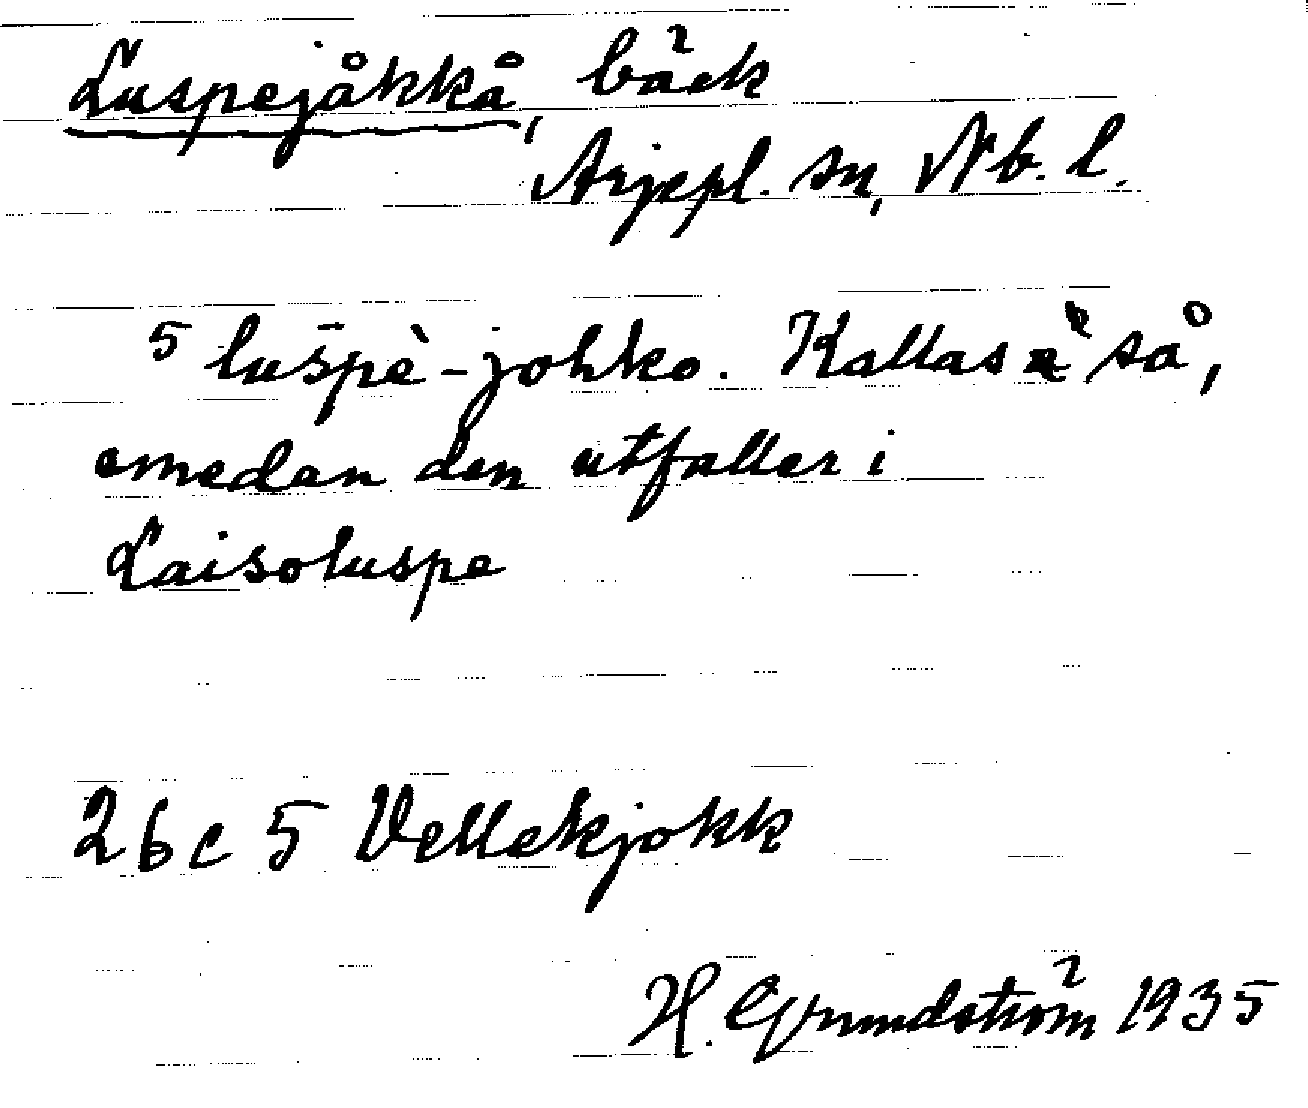 Luspejåkkå, bäck
Arjepl. sn, Nb. l.
5 luspè-johko. Kallas så,
emedan den utfaller i
Laisoluspe
26 c 5 Vellekjokk
H. Grundström 1935